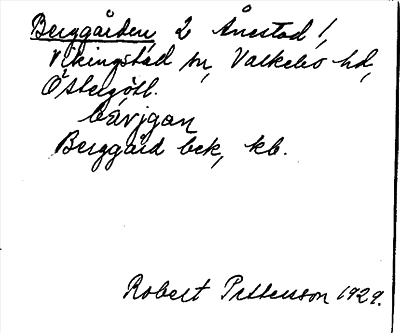 Berggården, 2 Ånestad /,
Vikingstad sn, Valkebo hd,
Östergötl.
bärjgan
Berggård bek, kb.
Robert Pettersson 1929.